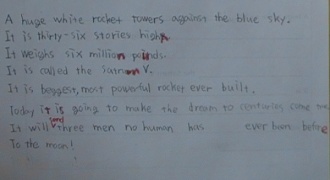 A huge white rocket towers against the blue sky.
It is thirty-six stories high.
It weighs six million pounds.
It is called the Saturn V.
It is beggest, most powerful rocket ever built.
Today it is going to make the dream to centuries come
It will send three men no human has ever been before
To the moon!